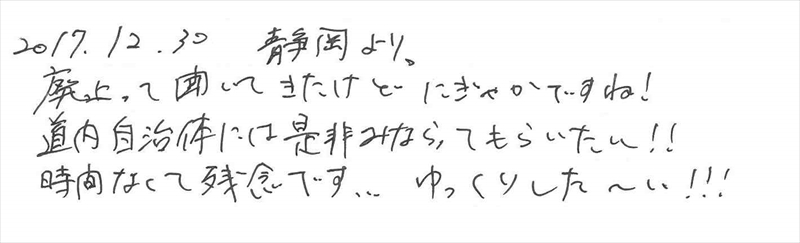 2017.12.30 静岡より。
廃止って聞いてきたけどにぎやかですね!
道内自治体には是非みならってもらいたい!!
時間なくて残念です… ゆっくりした〜い!!!